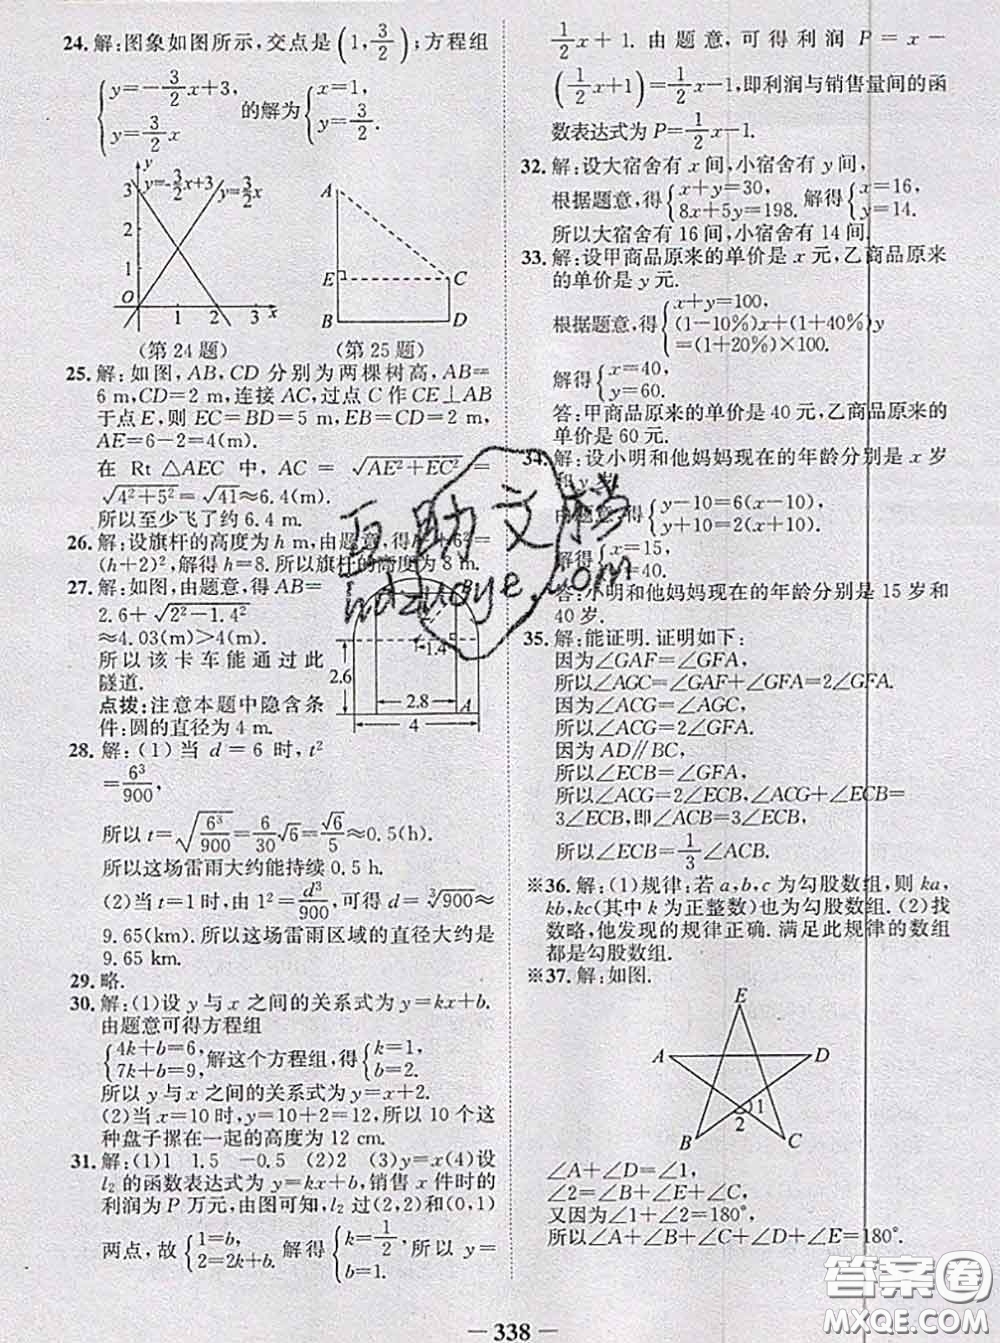 24. 解:图象如图所示,交点是(1, 3/2);方程组
{y=-3/2x+3, y=3/2x 的解为 {x=1, y=3/2.
y
3 y=-3/2x+3 y=3/2x
2
1
O 1 2 3 x
A
E C
B D
(第24题) (第25题)
25. 解:如图,AB,CD 分别为两棵树高,AB=
6 m,CD=2 m,连接 AC,过点 C 作 CE⊥AB
于点 E,则 EC=BD=5 m,EB=CD=2 m,
AE=6-2=4(m).
在 Rt △AEC 中,AC=√(AE²+EC²)=
√(4²+5²)=√41≈6.4(m).
所以至少飞了约 6.4 m.
26. 解:设旗杆的高度为 h m,由题意,得 6²=
(h+2)²,解得 h=8.所以旗杆的高度为 8 m.
27. 解:如图,由题意,得 AB=
2.6+√(2²-1.4²)
≈4.03(m)>4(m).
所以该卡车能通过此
隧道.
点拨:注意本题中隐含条
件:圆的直径为 4 m.
B
1.4
2.6
2.8 A
4
28. 解:(1)当 d=6 时,t²
=6³/900
所以 t=√(6³/900)=6/30√6=√6/5≈0.5(h).
所以这场雷雨大约能持续 0.5 h.
(2)当 t=1 时,由 1²=d³/900,可得 d=∛900≈
9.65(km).所以这场雷雨区域的直径大约是
9.65 km.
29. 略.
30. 解:(1)设 y 与 x 之间的关系式为 y=kx+b.
由题意可得方程组
{4k+b=6, 7k+b=9.解这个方程组,得{k=1, b=2.
所以 y 与 x 之间的关系式为 y=x+2.
(2)当 x=10 时,y=10+2=12,所以 10 个这
种盘子摞在一起的高度为 12 cm.
31. 解:(1)1 1.5 -0.5 (2)2 (3)y=x(4)设
l₂ 的函数表达式为 y=kx+b,销售 x 件时的
利润为 P 万元,由图可知,l₂ 过(2,2)和(0,1)
两点,故{1=b, 2=2k+b.解得{k=1/2, b=1. 所以 y=
1/2x+1.由题意,可得利润 P=x-
(1/2x+1)=1/2x-1,即利润与销售量间的函
数表达式为 P=1/2x-1.
32. 解:设大宿舍有 x 间,小宿舍有 y 间,
根据题意,得{x+y=30, 8x+5y=198. 解得{x=16, y=14.
所以大宿舍有 16 间,小宿舍有 14 间.
33. 解:设甲商品原来的单价是 x 元,乙商品原来
的单价是 y 元.
根据题意,得{x+y=100, (1-10%)x+(1+40%)y=(1+20%)×100.
解得{x=40, y=60.
答:甲商品原来的单价是 40 元,乙商品原来的
单价是 60 元.
34. 解:设小明和他妈妈现在的年龄分别是 x 岁
和 y
{y-10=6(x-10), y+10=2(x+10).
解得{x=15, y=40.
答:小明和他妈妈现在的年龄分别是 15 岁和
40 岁.
35. 解:能证明.证明如下:
因为∠GAF=∠GFA,
所以∠AGC=∠GAF+∠GFA=2∠GFA.
因为∠ACG=∠AGC,
所以∠ACG=2∠GFA.
因为 AD∥BC,
所以∠ECB=∠GFA,
所以∠ACG=2∠ECB,∠ACG+∠ECB=
3∠ECB,即∠ACB=3∠ECB,
所以∠ECB=1/3∠ACB.
※36. 解:(1)规律:若 a,b,c 为勾股数组,则 ka,
kb,kc(其中 k 为正整数)也为勾股数组.(2)找
数略,他发现的规律正确.满足此规律的数组
都是勾股数组.
※37. 解:如图.
E
A D
1
2
B C
∠A+∠D=∠1,
∠2=∠B+∠E+∠C,
又因为∠1+∠2=180°,
所以∠A+∠B+∠C+∠D+∠E=180°.
互助文档
hdzuoye.com
答案圈
MXQE.COM
338